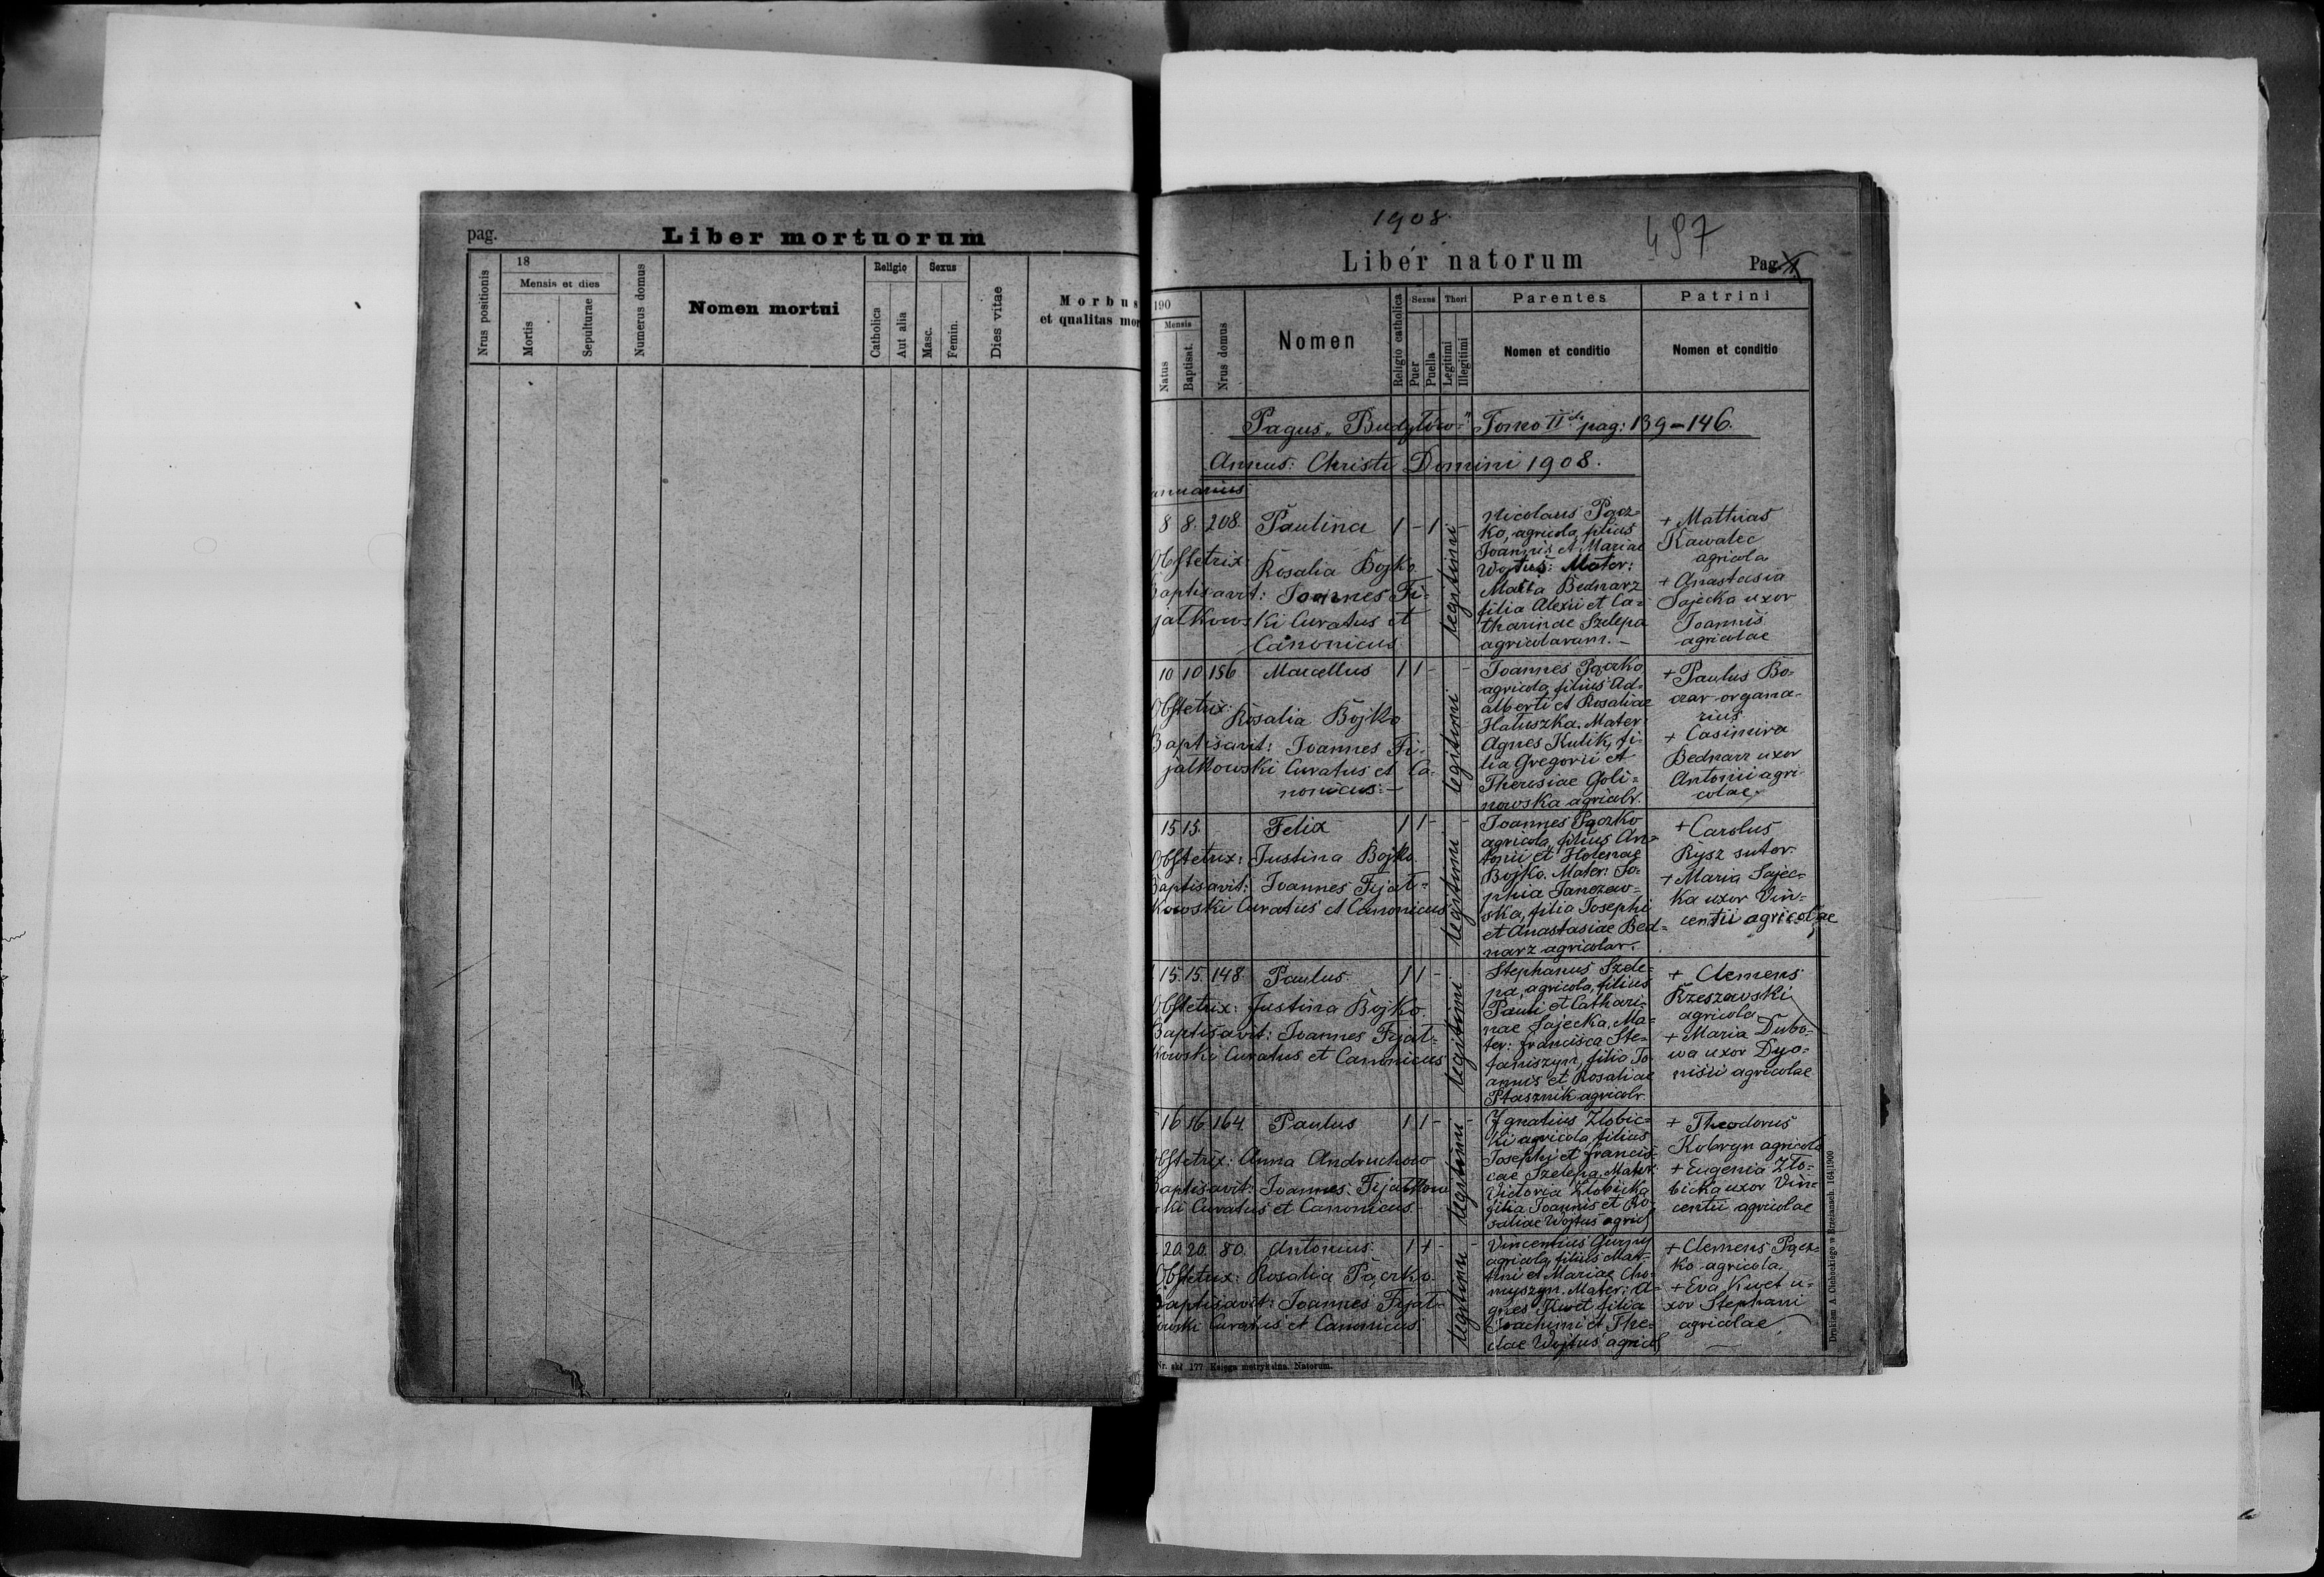 pag.
Liber mortuorum
Nrus positionis
18
Mensis et dies
Mortis
Sepulturae
Numerus domus
Nomen mortui
Religio
Catholica
Aut alia
Sexus
Masc.
Femin.
Dies vitae
Morbus
et qualitas mor
1908.
497
Liber natorum
Pag. 1
190
Mensis
Natus
Baptisat.
Nrus domus
Nomen
Religio catholica
Sexus
Puer
Puella
Thori
Legitimi
Illegitimi
Parentes
Nomen et conditio
Patrini
Nomen et conditio
Pagus „Budyłów" Tomo II do pag: 139-146.
Annus: Christi Domini 1908.
anuarius
8 8. 208. Paulina 1 - 1 -
Obstetrix: Rosalia Bojko
Baptisavit: Joannes Fi-
jałkowski Curatus et
Canonicus.
legitimi
Nicolaus Pącz-
ko, agricola, filius
Joannis et Mariae
Wojtuś: Mater:
Maria Bednarz
filia Alexii et Ca-
tharinae Szelepa
agricolarum. -
+ Mathias
Kawalec
agricola
+ Anastasia
Sajecka uxor
Joannis
agricolae
10 10 156 Marcellus 1 1 - -
Obstetrix: Rosalia Bojko
Baptisavit: Joannes Fi-
jałkowski Curatus et Ca-
nonicus: -
legitimi
Joannes Pączko
agricola, filius Ad-
alberti et Rosaliae
Hałuszka. Mater:
Agnes Kulik, fi-
lia Gregorii et
Theresiae Goli-
nowska agricolr.
+ Paulus Bo-
czar organa-
rius
+ Casimira
Bednarz uxor
Antonii agri-
colae
15 15. Felix 1 1 - -
Obstetrix: Justina Bojko.
Baptisavit: Joannes Fijał-
kowski Curatus et Canonicus
legitimi
Joannes Pączko
agricola, filius An-
tonii et Helenae
Bojko. Mater: So-
phia Janczew-
ska, filia Josephi
et Anastasiae Bed-
narz agricolar.
+ Carolus
Rysz sutor.
+ Maria Sajec-
ka uxor Vin-
centii agricolae
15. 15. 148. Paulus. 1 1 -
Obstetrix: Justina Bojko.
Baptisavit: Joannes Fijał-
kowski Curatus et Canonicus
legitimi
Stephanus Szele-
pa, agricola, filius
Pauli et Cathari-
nae Sajecka. Ma-
ter: Francisca Ste-
faniszyn, filia Jo-
annis et Rosaliae
Ptasznik agricolr.
+ Clemens
Rzeszowski
agricola
+ Maria Dubo-
wa uxor Dyo-
nisii agricolae
16 16 164. Paulus 1 1 - -
Obstetrix: Anna Andruchow
Baptisavit: Joannes Fijałkow
ski Curatus et Canonicus.
legitimi
Ignatius Złobic-
ki agricola, filius
Josephi et Francis-
cae Szelepa. Mater:
Victoria Złobicka
filia Joannis et Ro-
saliae Wojtuś agricol
+ Theodorus
Kobryn agricola
+ Eugenia Zło-
bicka uxor Vin-
centii agricolae
20. 20. 80. Antonius. 1 1 - -
Obstetrix: Rosalia Pączko.
Baptisavit: Joannes Fijał-
kowski Curatus et Canonicus.
legitimi
Vincentius Gurny
agricola, filius Mar-
tini et Mariae Cho-
myszyn. Mater: A-
gnes Kwet filia
Joachimi et The-
clae Wojtuś agricol
+ Clemens Pącz-
ko agricola.
+ Eva Kwet u-
xor Stephani
agricolae
Nr. skł 177 Księga metrykalna. Natorum.
Drukiem A. Cichockiego w Brzeżanach. 164|1900